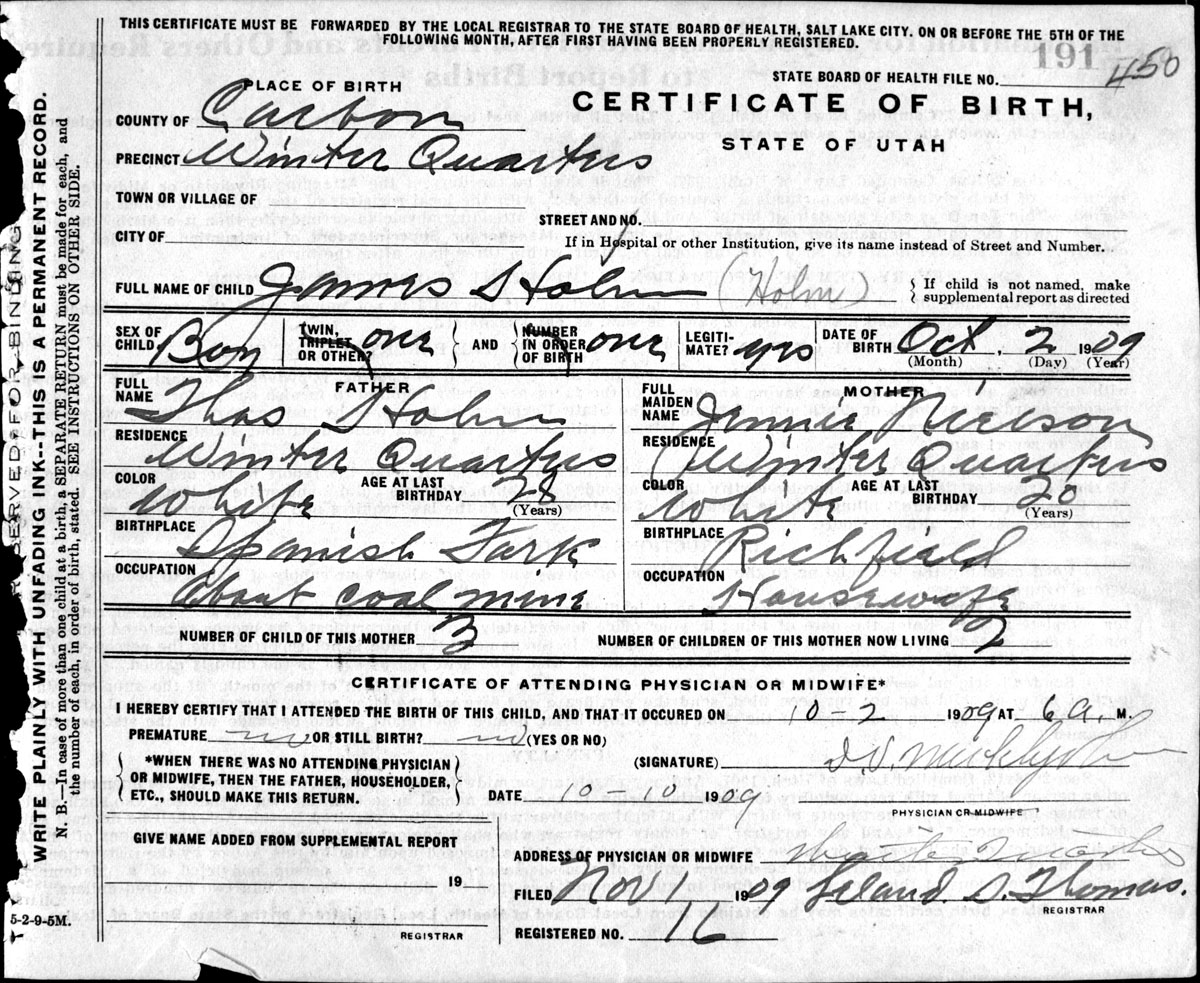 THIS CERTIFICATE MUST BE FORWARDED BY THE LOCAL REGISTRAR TO THE STATE BOARD OF HEALTH, SALT LAKE CITY. ON OR BEFORE THE 5TH OF THE
FOLLOWING MONTH, AFTER FIRST HAVING BEEN PROPERLY REGISTERED.
191
STATE BOARD OF HEALTH FILE NO. 450
PLACE OF BIRTH
CERTIFICATE OF BIRTH,
STATE OF UTAH
COUNTY OF Carbon
PRECINCT Winter Quarters
TOWN OR VILLAGE OF
STREET AND NO.
CITY OF
If in Hospital or other Institution, give its name instead of Street and Number.
FULL NAME OF CHILD James S Holm (Holm) { If child is not named, make
supplemental report as directed
SEX OF CHILD. Boy { TWIN, TRIPLET OR OTHER? one } AND { NUMBER IN ORDER OF BIRTH one LEGITI-MATE? yes DATE OF BIRTH Oct, 2 1909
(Month) (Day) (Year)
FATHER
FULL NAME Thos Holm
RESIDENCE Winter Quarters
COLOR White AGE AT LAST BIRTHDAY 28 (Years)
BIRTHPLACE Spanish Fark
OCCUPATION About coal mine
MOTHER
FULL MAIDEN NAME Jennie
RESIDENCE Winter Quarters
COLOR White AGE AT LAST BIRTHDAY 20 (Years)
BIRTHPLACE Richfield
OCCUPATION Housewife
NUMBER OF CHILD OF THIS MOTHER 3 NUMBER OF CHILDREN OF THIS MOTHER NOW LIVING 2
CERTIFICATE OF ATTENDING PHYSICIAN OR MIDWIFE*
I HEREBY CERTIFY THAT I ATTENDED THE BIRTH OF THIS CHILD, AND THAT IT OCCURED ON 10-2 1909 AT 6 A. M.
PREMATURE no OR STILL BIRTH? no (YES OR NO)
(SIGNATURE)
{ *WHEN THERE WAS NO ATTENDING PHYSICIAN
OR MIDWIFE, THEN THE FATHER, HOUSEHOLDER,
ETC., SHOULD MAKE THIS RETURN. }
DATE 10-10 1909
PHYSICIAN OR MIDWIFE
GIVE NAME ADDED FROM SUPPLEMENTAL REPORT
19
REGISTRAR
ADDRESS OF PHYSICIAN OR MIDWIFE
FILED Nov 1 1909 Leland S. Thomas.
REGISTRAR
REGISTERED NO. 16
RESERVED FOR BINDING
WRITE PLAINLY WITH UNFADING INK--THIS IS A PERMANENT RECORD.
N. B.—In case of more than one child at a birth, a SEPARATE RETURN must be made for each, and
the number of each, in order of birth, stated. SEE INSTRUCTIONS ON OTHER SIDE.
5-2-9-5M.